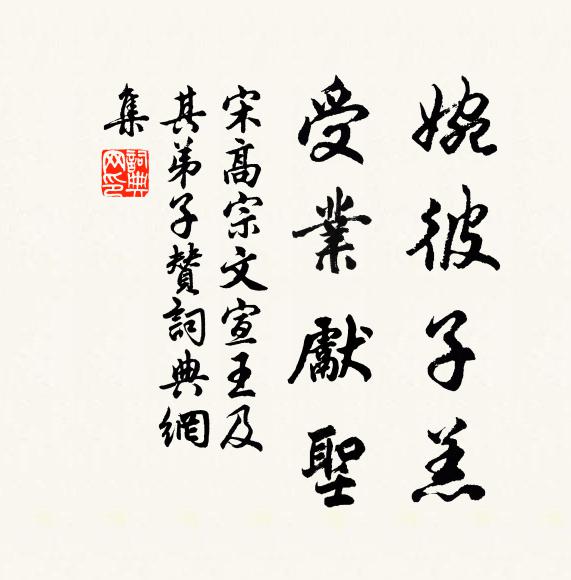 婉彼子羔
受業獻聖
宋高宗文宣王及
其弟子贊詞典網
集
詞典網印